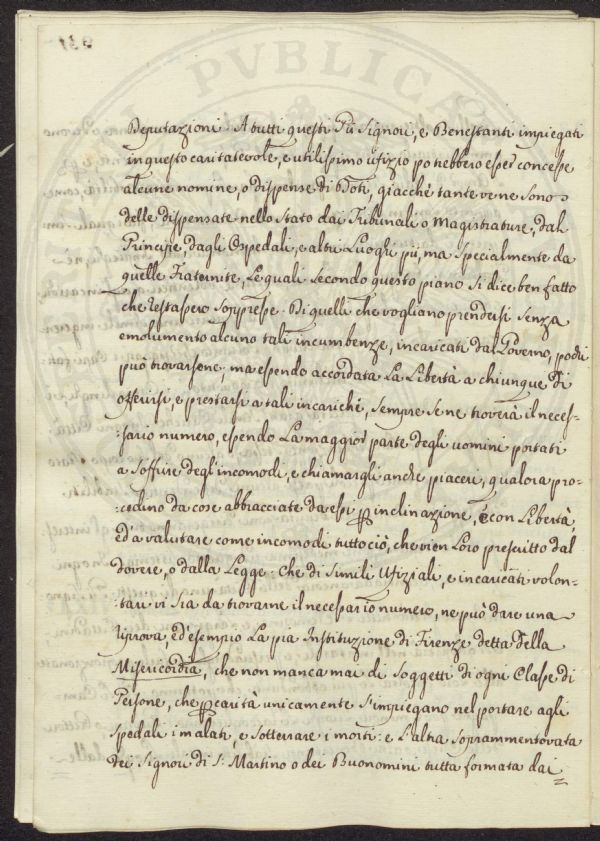 Deputazioni. A tutti questi Pii Signori, e Benestanti impiegati
in questo caritatevole, e utilissimo ufizio potrebbero esser concesse
alcune nomine, o dispense di Doti, giacchè tante ve ne sono
delle dispensate nello Stato dai Tribunali o Magistrature, dal
Principe, dagli Ospedali, e altri Luoghi pii, ma specialmente da
quelle Fraternite, Le quali secondo questo piano si dice ben fatto
che restassero soppresse. Di quelli che vogliano prendersi senza
emolumento alcuno tali incumbenze, incaricati dal Governo, pochi
può trovarsene, ma essendo accordata La Libertà a chiunque di
offerirsi, e prestarsi a tali incariche, sempre se ne troverà il neces=
:sario numero, essendo La maggior parte degli uomini portati
a soffrire degl'incomodi, e chiamargli anche piaceri, qualora pro=
:cedino da cose abbracciate da essi per inclinazione, e con Libertà,
ed a valutare come incomodi tutto ciò, che vien Loro prescritto dal
dovere, o dalla Legge. Che di simili Ufiziali, e incaricati volon=
:tari vi sia da trovarne il necessario numero, ne può dare una
riprova, ed esempio La pia Instituzione di Firenze detta della
Misericordia, che non manca mai di soggetti di ogni Classe di
Persone, che per carità unicamente s'impiegano nel portare agli
spedali i malati, e sotterrare i morti: e L'altra soprammentovata
dei Signori di S. Martino o dei Buonomini tutta formata dai =